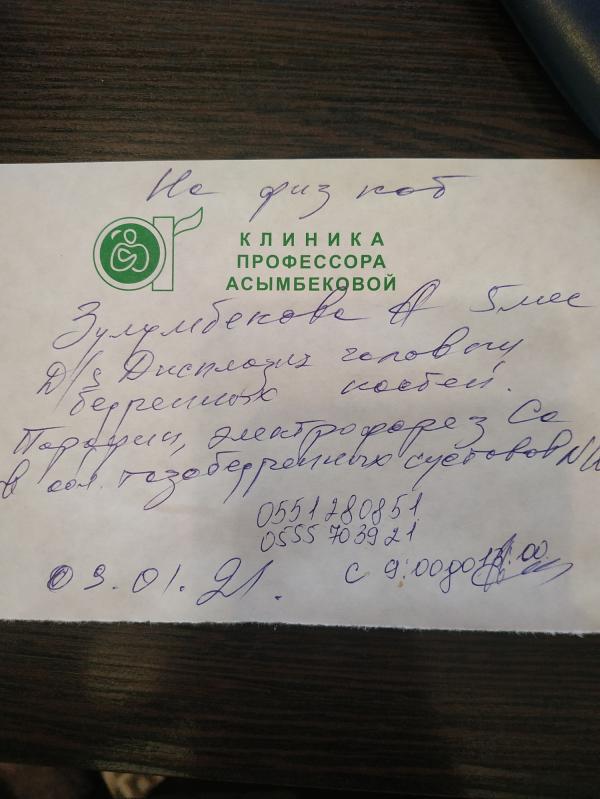 На физ каб
КЛИНИКА
ПРОФЕССОРА
АСЫМБЕКОВОЙ
Зулумбекова А 5 мес
D/s Дисплазия головку
бедренных костей.
Парафин, электрофорез Ca
в обл. тазобедренных суставов N
0551 280851
0555 703921
с 9:00 до :00
09.01.21.